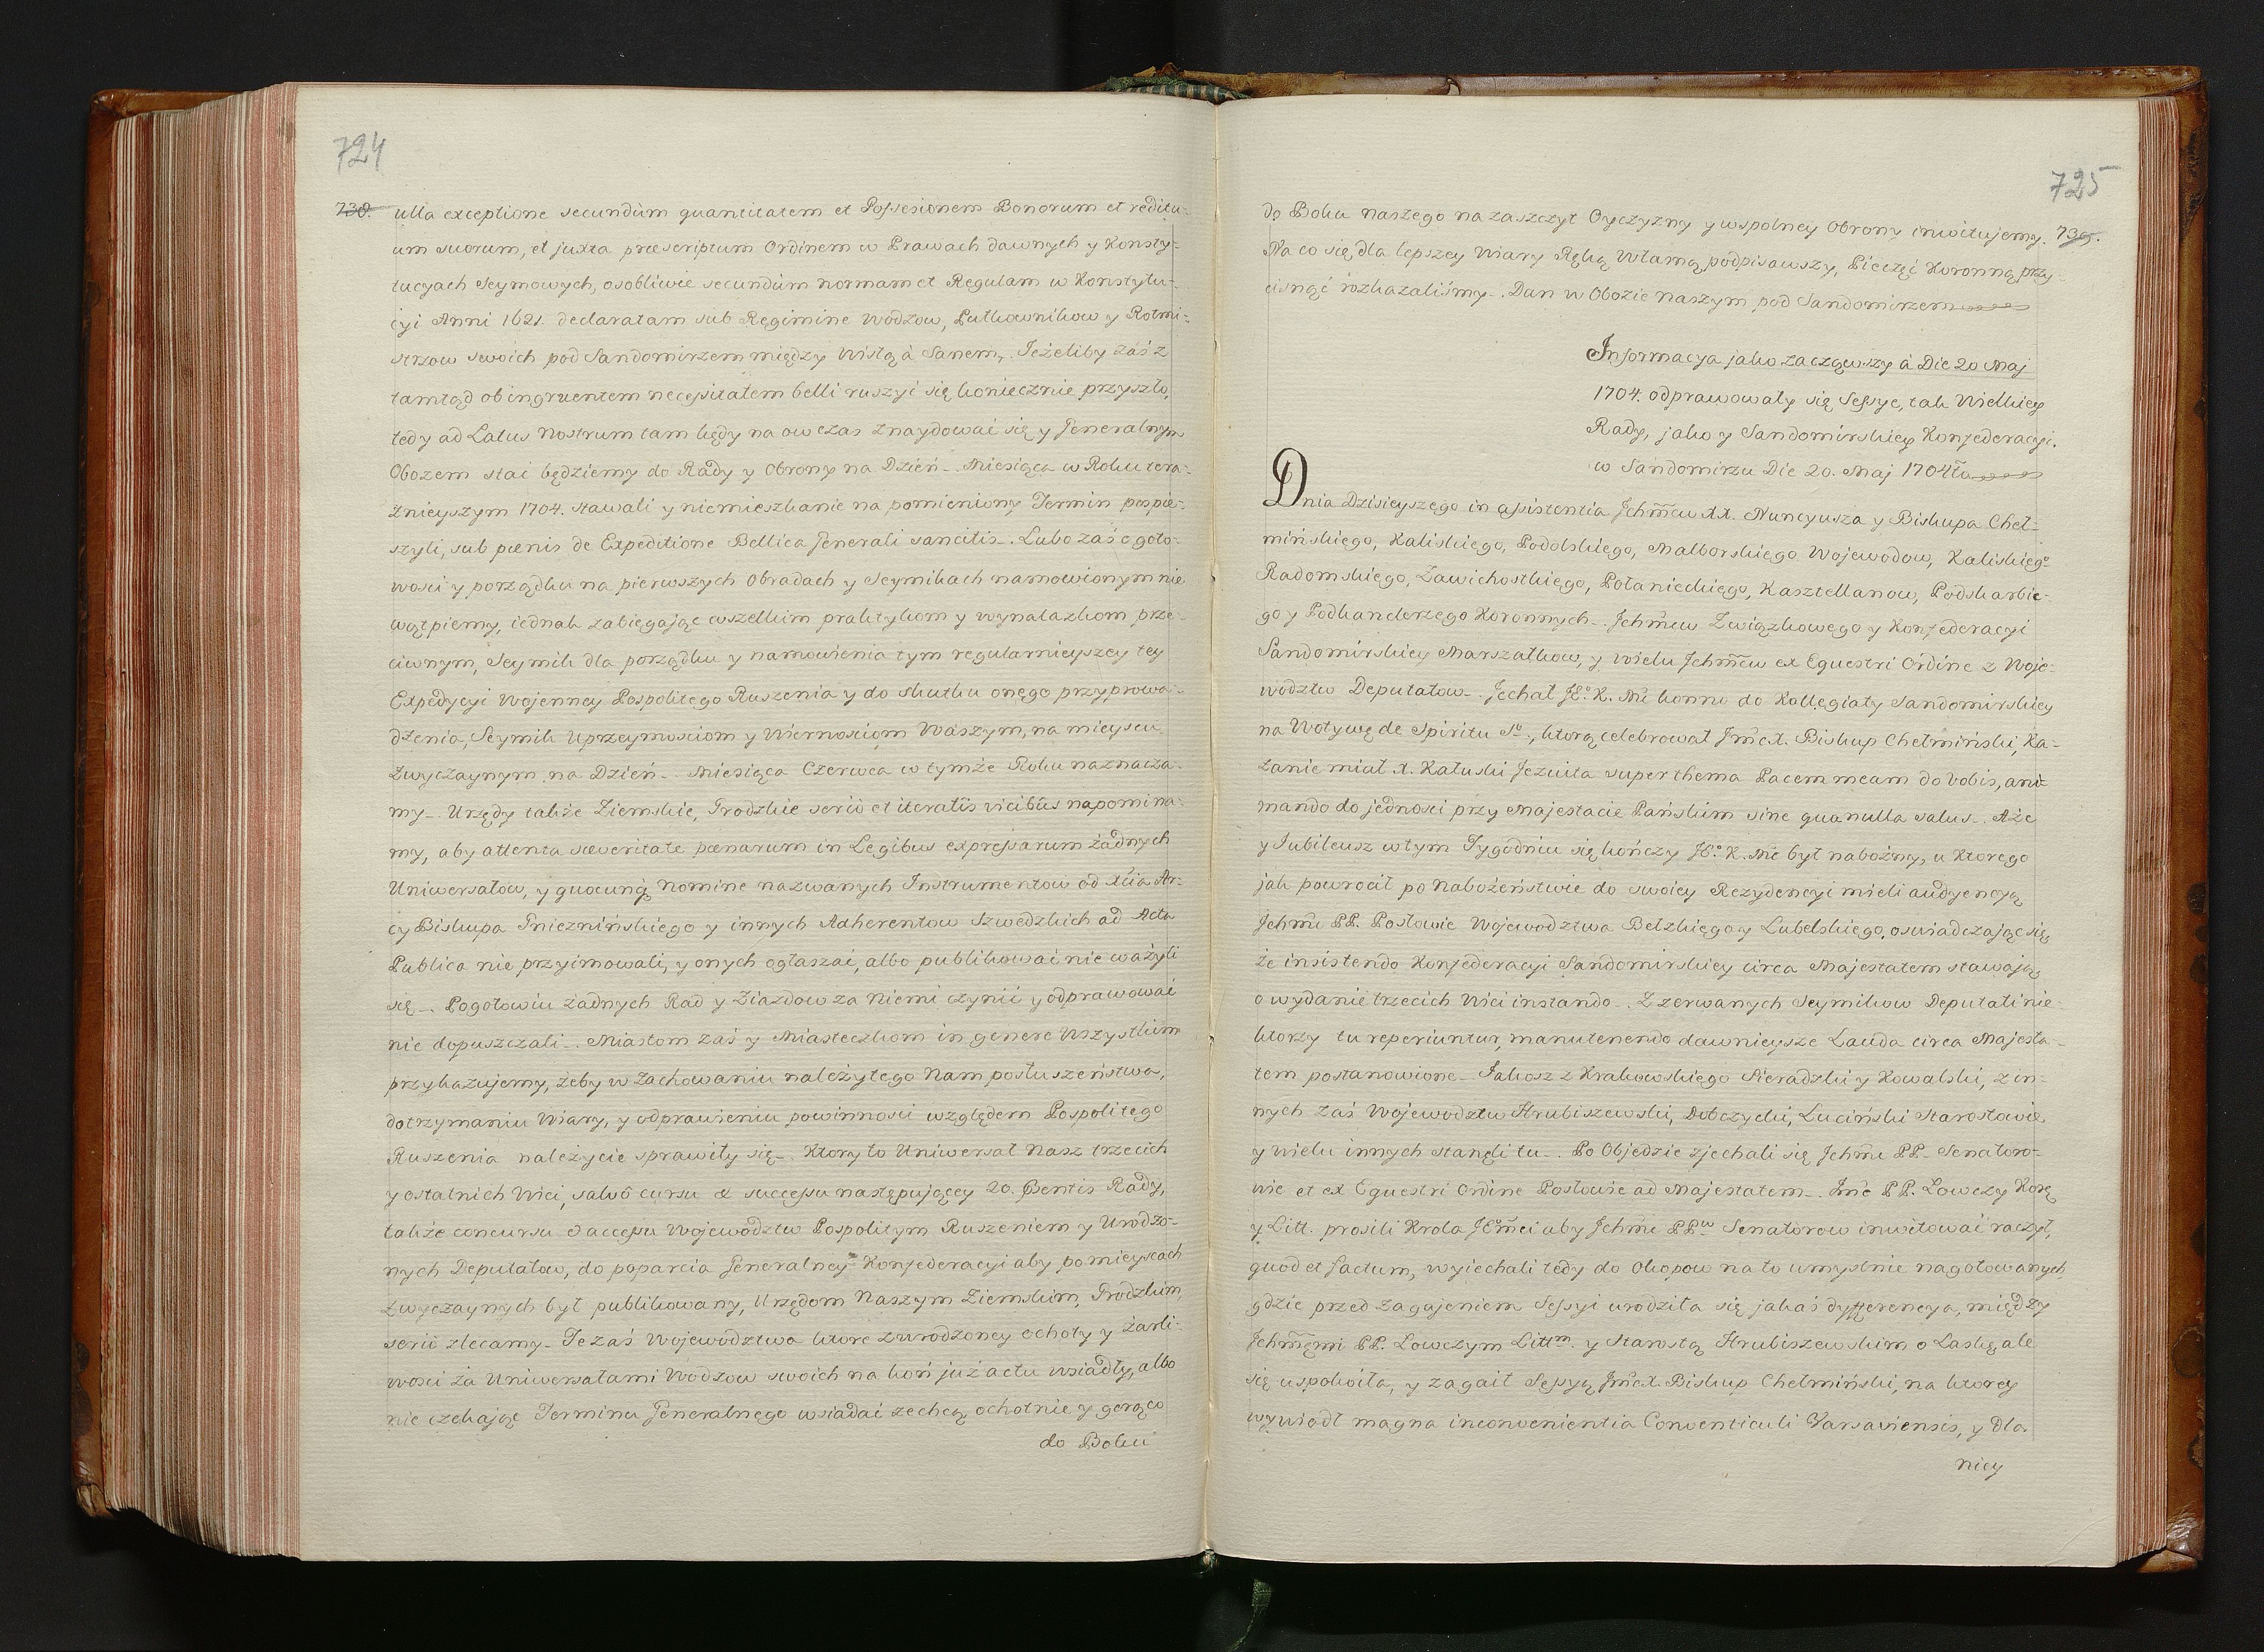 724
738. ulla exceptione secundùm quantitatem et Possesionem Bonorum et reditu-
um suorum, et juxta præscriptum Ordinem w Prawach dawnych y Konsty-
tucyach Seymowych, osobliwie secundùm normam et Regulam w Konstytu-
cyi Anni 1621. declaratam sub Regimine Wodzow, Pułkownikow y Rotmi-
strzow swoich pod Sandomirzem między Wisłą à Sanem. Jeżeliby zaś z
tamtąd ob ingruentem necessitatem belli ruszyć się koniecznie przyszło,
tedy ad Latus Nostrum tam kędy na ow czas znaydować się y Generalnym
Obozem stać będziemy do Rady y Obrony na Dzień _ Miesiąca w Roku tera-
źnieyszym 1704. stawali y niemieszkanie na pomieniony Termin pospie-
szyli, sub pœnis de Expeditione Bellica Generali sancitis _. Lubo zaś o goto-
wości y porządku na pierwszych Obradach y Seymikach namowionym nie
wątpiemy, iednak zabiegając wszelkim praktykom y wynalazkom prze-
ciwnym, Seymik dla porządku y namowienia tym regularnieyszey tey
Expedycyi Wojenney Pospolitego Ruszenia y do skutku onego przyprowa-
dzenia, Seymik Uprzeymosciom y Wiernosciom Waszym, na mieyscu
Zwyczaynym na Dzień _ Miesiąca Czerwca w tymże Roku naznacza-
my _. Urzędy także Ziemskie, Grodzkie seriò et iteratis vicibûs napomina-
my, aby attenta sæveritate pœnarum in Legibus expressarum żadnych
Uniwersałow, y quocunq nomine nazwanych Instrumentow od Xcia Ar-
cy Biskupa Gnieznińskiego y innych Adherentow Szwedzkich ad Acta
Publica nie przyimowali, y onych ogłaszać, albo publikować nie ważyli
się _. Pogotowiu żadnych Rad y Ziazdow za niemi czynić y odprawować
nie dopuszczali _. Miastom zaś y Miasteczkom in genere Wszystkim
przykazujemy, żeby w zachowaniu należytego Nam posłuszeństwa,
dotrzymaniu Wiary, y odprawieniu powinnosci względem Pospolitego
Ruszenia należycie sprawiły się _. Ktory to Uniwersał Nasz trzecich
y ostatnich Wici, salvô cursu & successu następującey 20. præsentis Rady,
także concursu & accessu Wojewodztw Pospolitym Ruszeniem y Urodzo-
nych Deputatow, do poparcia Generalney Konfederacyi aby po mieyscach
zwyczaynych był publikowany, Urzędom Naszym Ziemskim, Grodzkim,
seriò zlecamy _ Te zaś Wojewodztwa ktore z urodzoney ochoty y żarli-
wosci za Uniwersałami Wodzow swoich na koń już actu wsiadły, albo
nie czekając Terminu Generalnego wsiadać zechcą ochotnie y gorąco
do Boku
725
do Boku naszego na zaszczyt Oyczyzny y wspolney Obrony inwitujemy. 739.
Na co się, dla lepszey Wiary Ręką Własną podpisawszy, Pieczęć Koronną przy-
cisnąć rozkazaliśmy _. Dan w Obozie naszym pod Sandomirzem
Informacya jako zacząwszy à Die 20 Maj
1704. odprawowały się Sessye, tak Wielkiey
Rady, jako y Sandomirskiey Konfederacyi.
w Sandomirzu Die 20. Maj 1704ta
Dnia Dzisieyszego in assistentia Jchmcw XX. Nuncyusza y Biskupa Cheł-
mińskiego, Kaliskiego, Podolskiego, Malborskiego Wojewodow, Kaliskiego
Radomskiego, Zawichostkiego, Połanieckiego, Kasztellanow, Podskarbie-
go y Podkanclerzego Koronnych _. Jchmcw Związkowego y Konfederacyi
Sandomirskiey Marszałkow, y wielu Jchmcw ex Equestri Ordine z Woje-
wodztw Deputatow _. Jechał JEo K. Mć konno do Kollegiaty Sandomirskiey
na Wotywę de Spiritu So, ktorą celebrował Jmc X. Biskup Chełmiński, Ka-
zanie miał X. Kałuski Jezuita super thema Pacem meam do vobis, ani-
mando do jednosci przy Majestacie Pańskim sine qua nulla salus _. Aże
y Jubileusz w tym Tygodniu się kończy JEo K. Mć był nabożny, u Ktorego
jak powrocił po Nabożeństwie do swoiey Rezydencyi mieli audyencyą
Jchmc PP. Posłowie Wojewodztwa Bełzkiego y Lubelskiego, oswiadczając się,
że insistendo Konfederacyi Sandomirskiey circa Majestatem stawają,
o wydanie trzecich Wici instando _. Z zerwanych Seymikow Deputati nie-
ktorzy tu reperiuntur, manutenendo dawnieysze Lauda circa Majesta-
tem postanowione _ Jakosz z Krakowskiego Sieradzki y Kowalski, z in-
nych zaś Wojewodztw Hrubiszewski, Dobczycki, Luciński Starostowie
y wielu innych stanęli tu _. Po Objedzie zjechali się Jchmc PP. Senatoro-
wie et ex Equestri Ordine Posłowie ad Majestatem _. Jmc PP. Lowczy Kory
y Litt. prosili Krola JEomci aby Jchmc PPw Senatorow inwitować raczył,
quod et factum, wyiechali tedy do Okopow na to umyslnie nagotowanych,
gdzie przed zagajeniem Sessyi urodziła się jakaś dyfferencya, między
Jchmcmi PP. Lowczym Littm. y Starostą Hrubiszewskim o Laskę, ale
się uspokoiła, y zagaił Sessyą Jmc X. Biskup Chełmiński, na ktorey
wywiodł magna inconvenientia Conventiculi Varsaviensis, y dla
niey